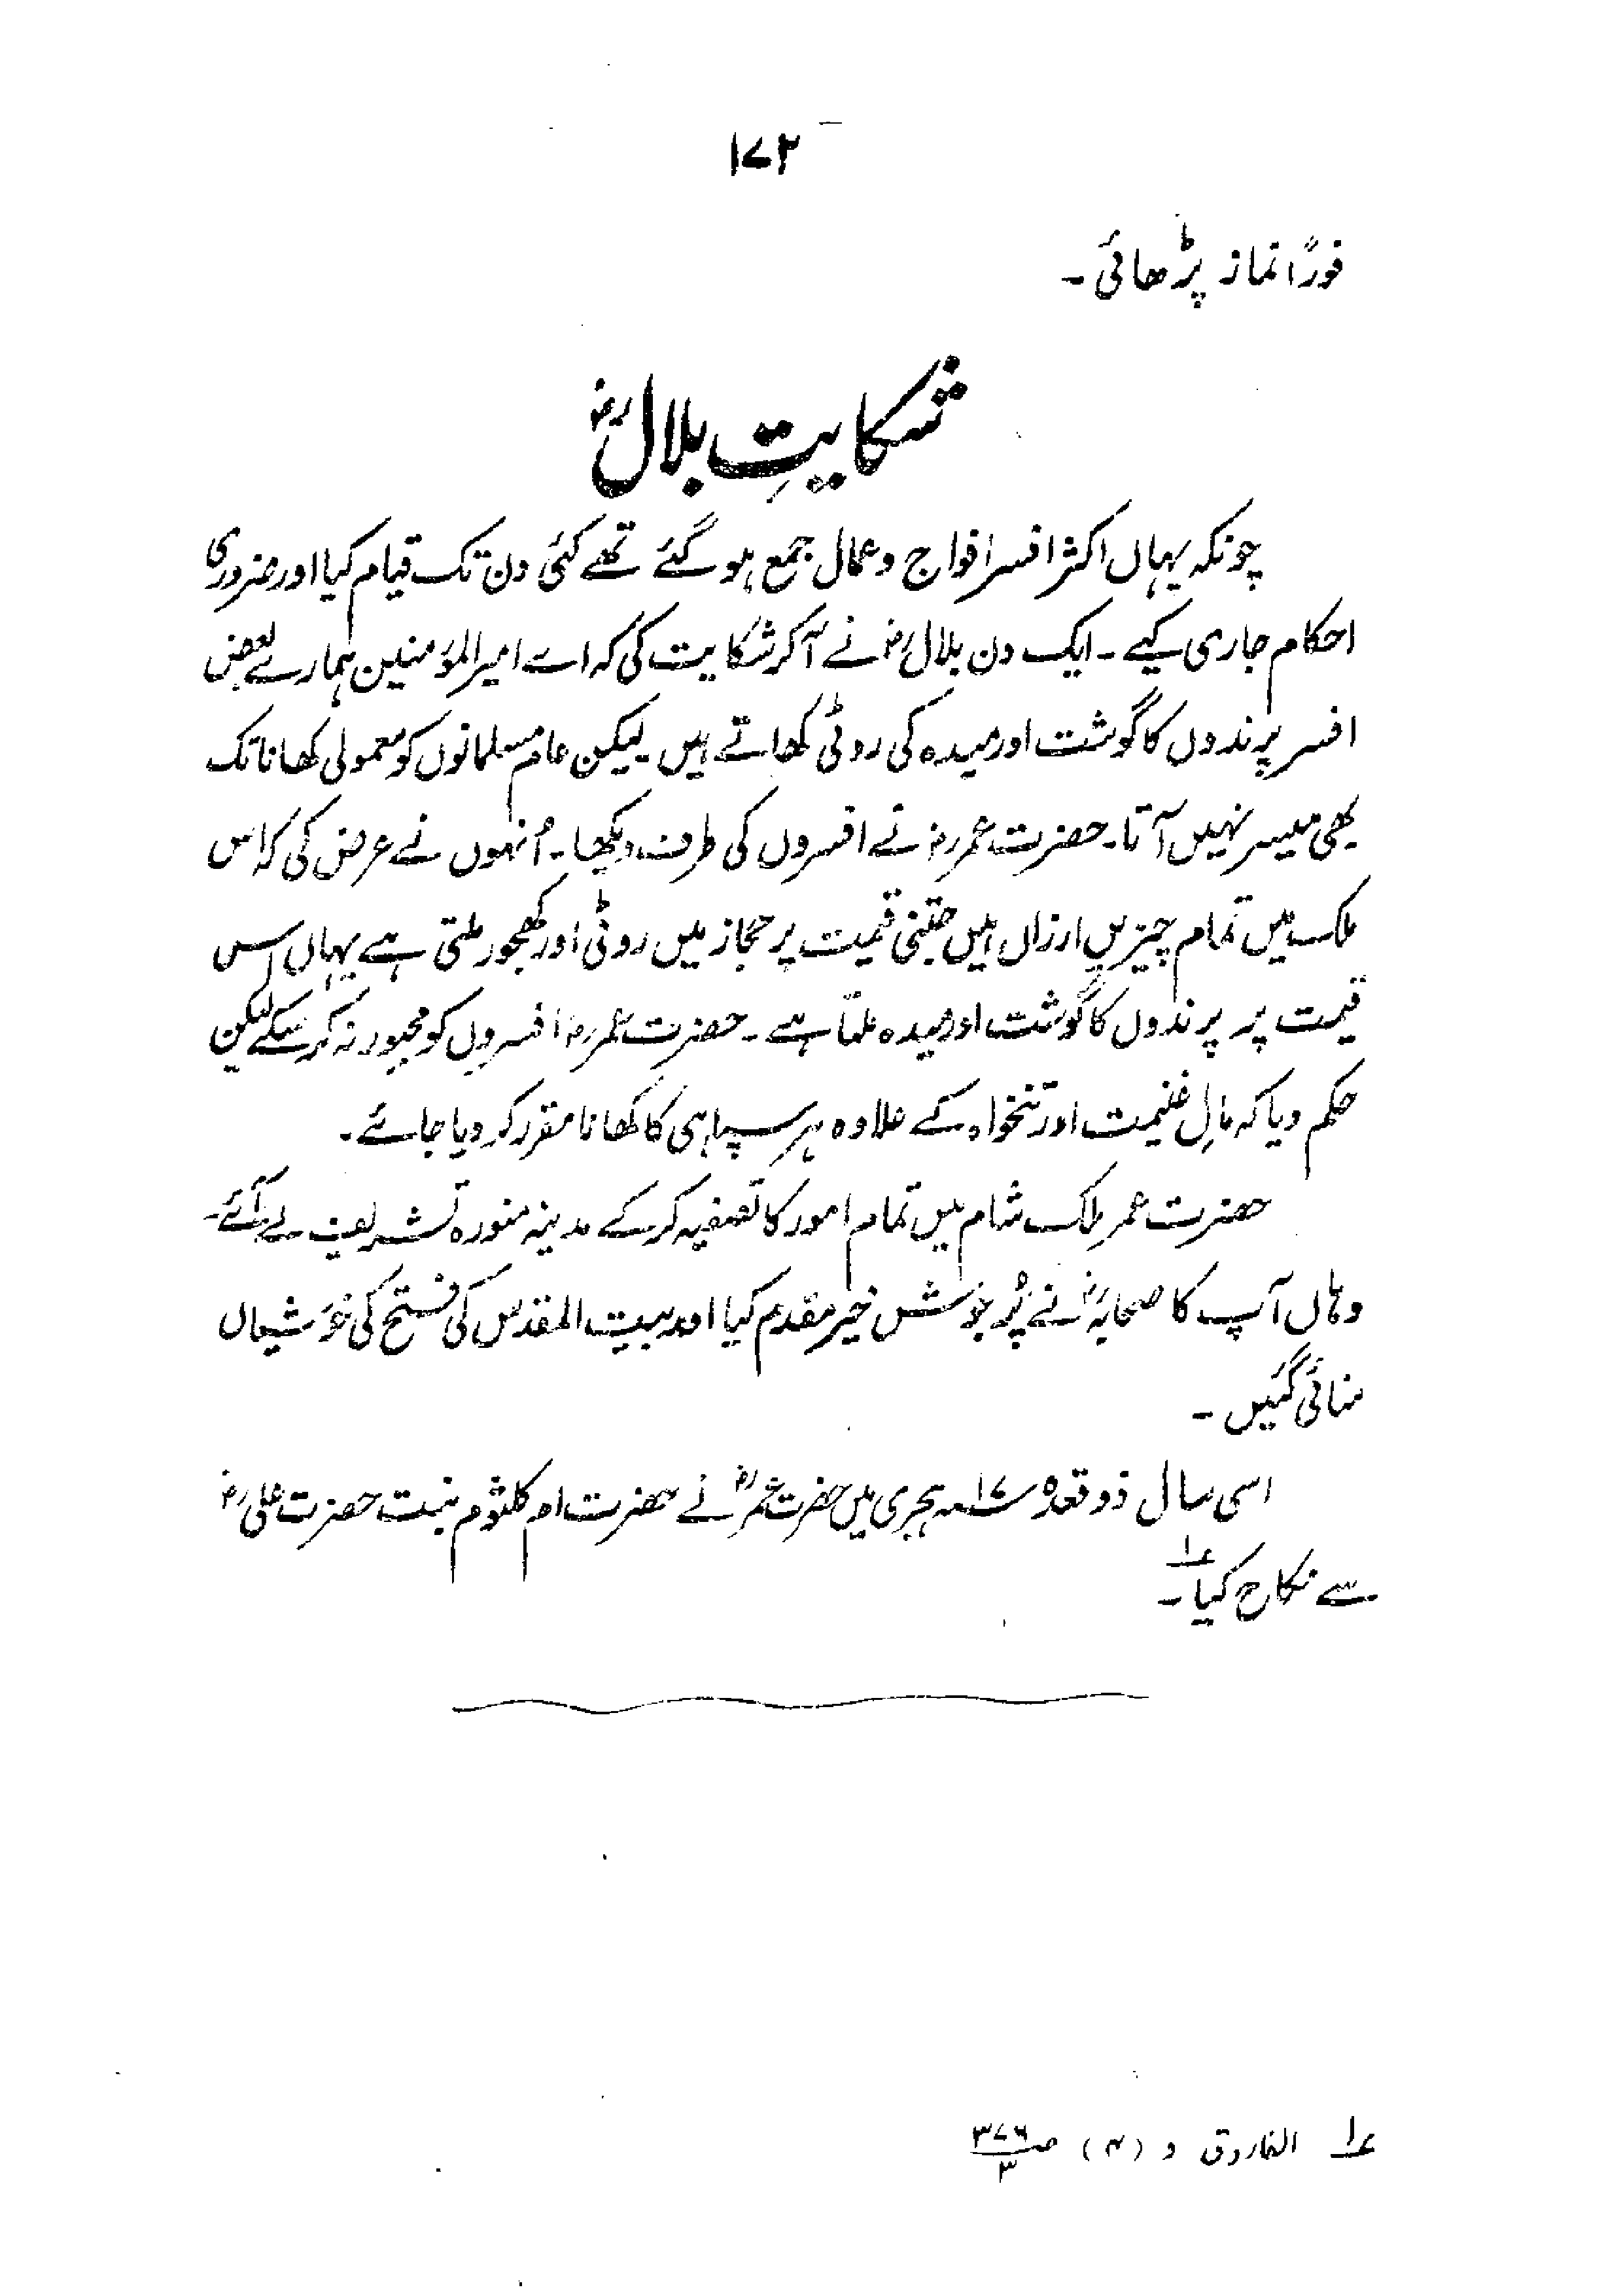 ۱۷۲
فوراً نماز پڑھائی ۔
شکایتِ بلالؓ
چونکہ یہاں اکثر افسر افواج و عمال جمع ہو گئے تھے کئی دن تک قیام کیا اور ضروری
احکام جاری کیے ۔ ایک دن بلالؓ نے آکر شکایت کی کہ اے امیر المؤمنین ہمارے بعض
افسر پرندوں کا گوشت اور میدہ کی روٹی کھاتے ہیں لیکن عام مسلمانوں کو معمولی کھانا تک
بھی میسر نہیں آتا۔ حضرت عمرؓ نے افسروں کی طرف دیکھا۔ اُنہوں نے عرض کی کہ اس
ملک میں تمام چیزیں ارزاں ہیں جتنی قیمت پر حجاز میں روٹی اور کھجور ملتی ہے یہاں اسی
قیمت پر پرندوں کا گوشت اور میدہ ملتا ہے ۔ حضرت عمرؓ افسروں کو مجبور نہ کر سکے لیکن
حکم دیا کہ مالِ غنیمت اور تنخواہ کے علاوہ ہر سپاہی کا کھانا مقرر کر دیا جائے ۔
حضرت عمر ملک شام میں تمام امور کا تصفیہ کرکے مدینہ منورہ تشریف لے آئے۔
وہاں آپ کا صحابہؓ نے پُر جوش خیر مقدم کیا اور بیت المقدس کی فتح کی خوشیاں
منائی گئیں ۔
اسی سال ذوقعدہ ۱۷ھ ہجری میں حضرت عمرؓ نے حضرت ام کلثوم بنت حضرت علیؓ
سے نکاح کیا۔ ؏۱
؏۱ الفاروق و (۴) صـ ۳۷۶/۳